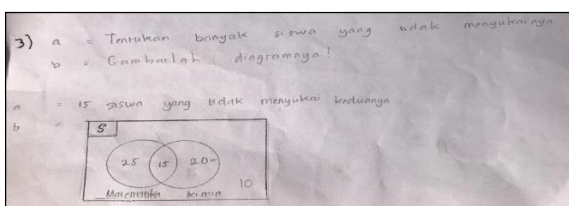 3) a = Tentukan banyak siswa yang tidak menyukainya
b = Gambarlah diagramnya!
a = 15 siswa yang tidak menyukai keduanya
b =
S
25 15 20
10
Matematika kimia